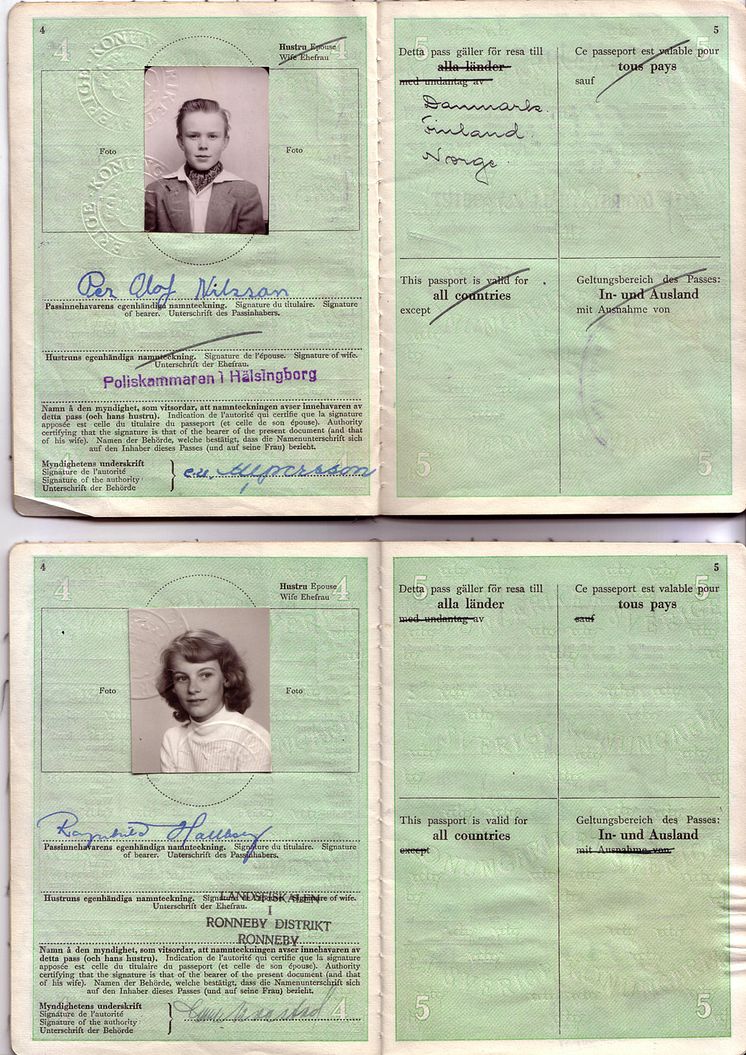 4
4
4
Hustru Epouse
Wife Ehefrau
SVERIGE KONUN
ERIGE KONUN
Foto
Foto
Per Olof Nilsson
Passinnehavarens egenhändiga namnteckning. Signature du titulaire. Signature
of bearer. Unterschrift des Passinhabers.
Hustruns egenhändiga namnteckning. Signature de l'épouse. Signature of wife.
Unterschrift der Ehefrau.
Poliskammaren i Hälsingborg
Namn å den myndighet, som vitsordar, att namnteckningen avser innehavaren av
detta pass (och hans hustru). Indication de l'autorité qui certifie que la signature
apposée est celle du titulaire du passeport (et celle de son épouse). Authority
certifying that the signature is that of the bearer of the present document (and that
of his wife). Namen der Behörde, welche bestätigt, dass die Namenunterschrift sich
auf den Inhaber dieses Passes (und auf seine Frau) bezieht.
Myndighetens underskrift
Signature de l'autorité
Signature of the authority
Unterschrift der Behörde
5
5
5
Detta pass gäller för resa till
alla länder
med undantag av
Danmark.
Finland.
Norge.
Ce passeport est valable pour
tous pays
sauf
This passport is valid for
all countries
except
Geltungsbereich des Passes:
In- und Ausland
mit Ausnahme von
5
5
4
4
4
Hustru Epouse
Wife Ehefrau
Foto
Foto
Ragnhild
Passinnehavarens egenhändiga namnteckning. Signature du titulaire. Signature
of bearer. Unterschrift des Passinhabers.
Hustruns egenhändiga namnteckning. Signature de l'épouse. Signature of wife.
Unterschrift der Ehefrau.
LANDSFISKALEN
I
RONNEBY DISTRIKT
RONNEBY
Namn å den myndighet, som vitsordar, att namnteckningen avser innehavaren av
detta pass (och hans hustru). Indication de l'autorité qui certifie que la signature
apposée est celle du titulaire du passeport (et celle de son épouse). Authority
certifying that the signature is that of the bearer of the present document (and that
of his wife). Namen der Behörde, welche bestätigt, dass die Namenunterschrift sich
auf den Inhaber dieses Passes (und auf seine Frau) bezieht.
Myndighetens underskrift
Signature de l'autorité
Signature of the authority
Unterschrift der Behörde
4
5
5
5
Detta pass gäller för resa till
alla länder
med undantag av
Ce passeport est valable pour
tous pays
sauf
This passport is valid for
all countries
except
Geltungsbereich des Passes:
In- und Ausland
mit Ausnahme von
5
5